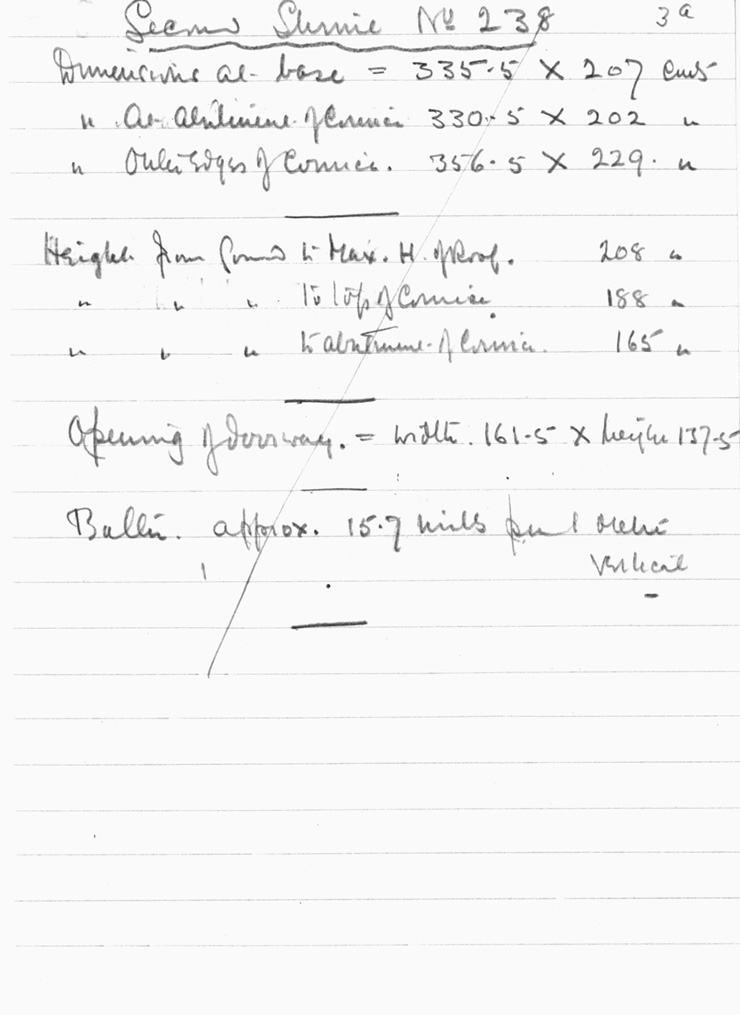 Second Shrine No 238 3a
Dimensions at base = 335.5 X 207 cms
" At abutment of Cornice 330.5 X 202 "
" Outer Edges of Cornice. 356.5 X 229. "
Height from Ground to Max. H. of Roof. 208 "
" " " To top of Cornice 188 "
" " " to abutment of Cornice. 165 "
Opening of doorway. = width. 161.5 X height 137.5
Batter. approx. 15.7 mills per 1 metre
Vertical